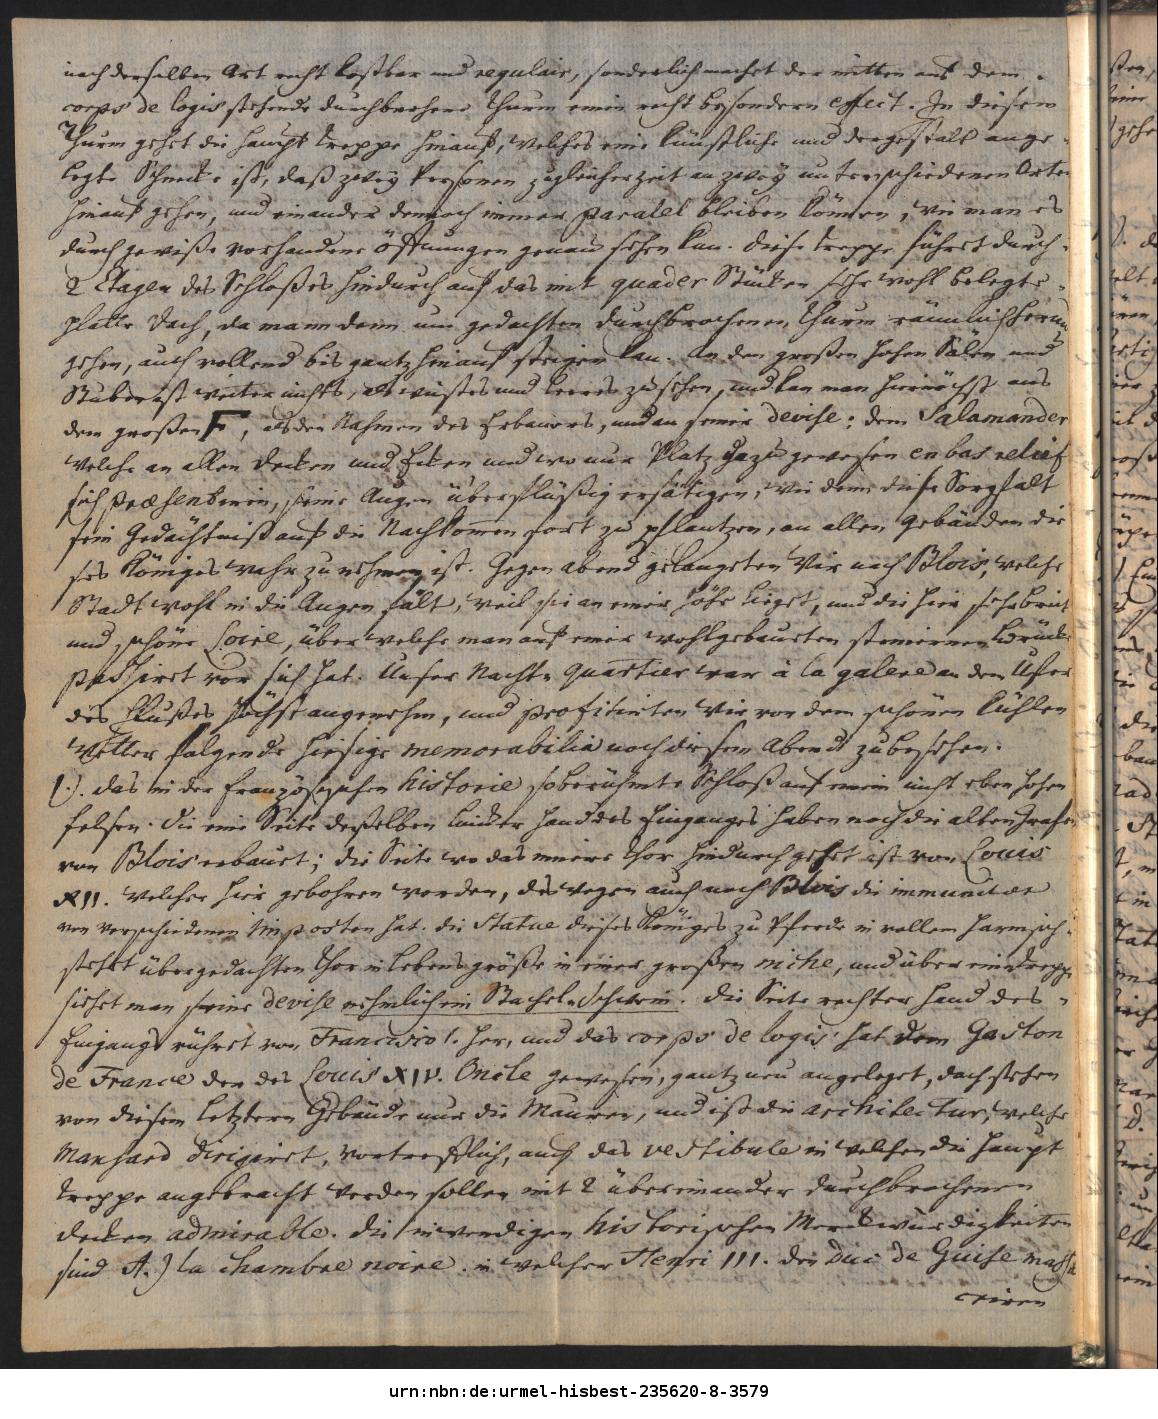 nach derselben Art recht kostbar und regulair, sonderlich machet der mitten aus dem
corps de logis stehende durchbrochene Thurm einen recht besondern effect. In diesem
Thurm gehet die Haupt Treppe hinauf, welches eine künstliche und dergestalt ange-
legte Schnecke ist, daß zwey Personen zugleicher zeit an zwey unterschiedenen Orten
hinauf gehen, und einander dennoch immer paralel bleiben können, wie man es
durch gewiße vorhandene öffnungen genau sehen kan. diese Treppe führet durch
2 Etagen des Schloßes hindurch auf das mit quader Stücken sehr wohl belegte
platte Dach, da mann denn um gedachten durchbrochenen Thurm räumlich herum
gehen, auch vollend bis gantz hinauf steigen kan. In den großen hohen Sälen und
Stuben ist weiter nichts, als wüstes und leeres zu sehen, und kan man hiernächst aus
dem großen F, als den Nahmen des Erbauers, und an seiner devise: dem Salamander
welche an allen Decken und Ecken und wo nur Platz dazu gewesen en bas relief
sich præsentiren, seine Augen überflüßig ersätigen, wie denn diese Sorgfalt
sein Gedächtniß auf die Nachkommen fort zu pflantzen, an allen Gebäuden die-
ses Königes wahr zu nehmen ist. Gegen abend gelangeten Wir nach Blois, welche
Stadt wohl in die Augen fält, weil sie an einer Höhe lieget, und die hier sehr breite
und schöne Loire, über welche man auf einer wohlgebaueten steinernen Brücke
passiret vor sich hat. Unser Nacht-quartier war à la galere an dem Ufer
des Flußes höchst angenehm, und profitirten Wir von dem schönen kühlen
Wetter folgende hiesige memorabilia noch diesen Abend zu besehen.
1.). das in der französischen historie so berühmte Schloß auf einem nicht eben hohen
felsen. die eine Seite deßelben lincker Hand des Einganges haben noch die alten Grafen
von Blois erbauet; die Seite wo das innere Thor hindurch gehet ist von Louis
XII. welcher hier gebohren worden, deswegen auch noch Blois die immunitæt
von verschiedenen imposten hat. die Statue dieses Königes zu Pferde in vollem Harnisch
stehet über gedachten Thor in Lebensgröße in einer großen niche, und über eine Treppe
siehet man seine devise nehmlich ein Stachel-Schwein. die Seite rechter Hand des
Eingangs rühret von Francisco I. her, und das corps de logis hat dem Gaston
de France der des Louis XIV. Oncle gewesen, gantz neu angeleget, doch stehen
von diesem letztern Gebäude nur die Mauren, und ist die architectur, welche
Manhard dirigiret, vortrefflich, auch das vestibule in welchen die haupt
Treppe angebracht werden sollen mit 2 übereinander durchbrochenen
decken admirable. die inwendigen historischen Merckwürdigkeiten
sind A.) la chambre noire in welcher Henri III. den Duc de Guise massa
criren
urn:nbn:de:urmel-hisbest-235620-8-3579